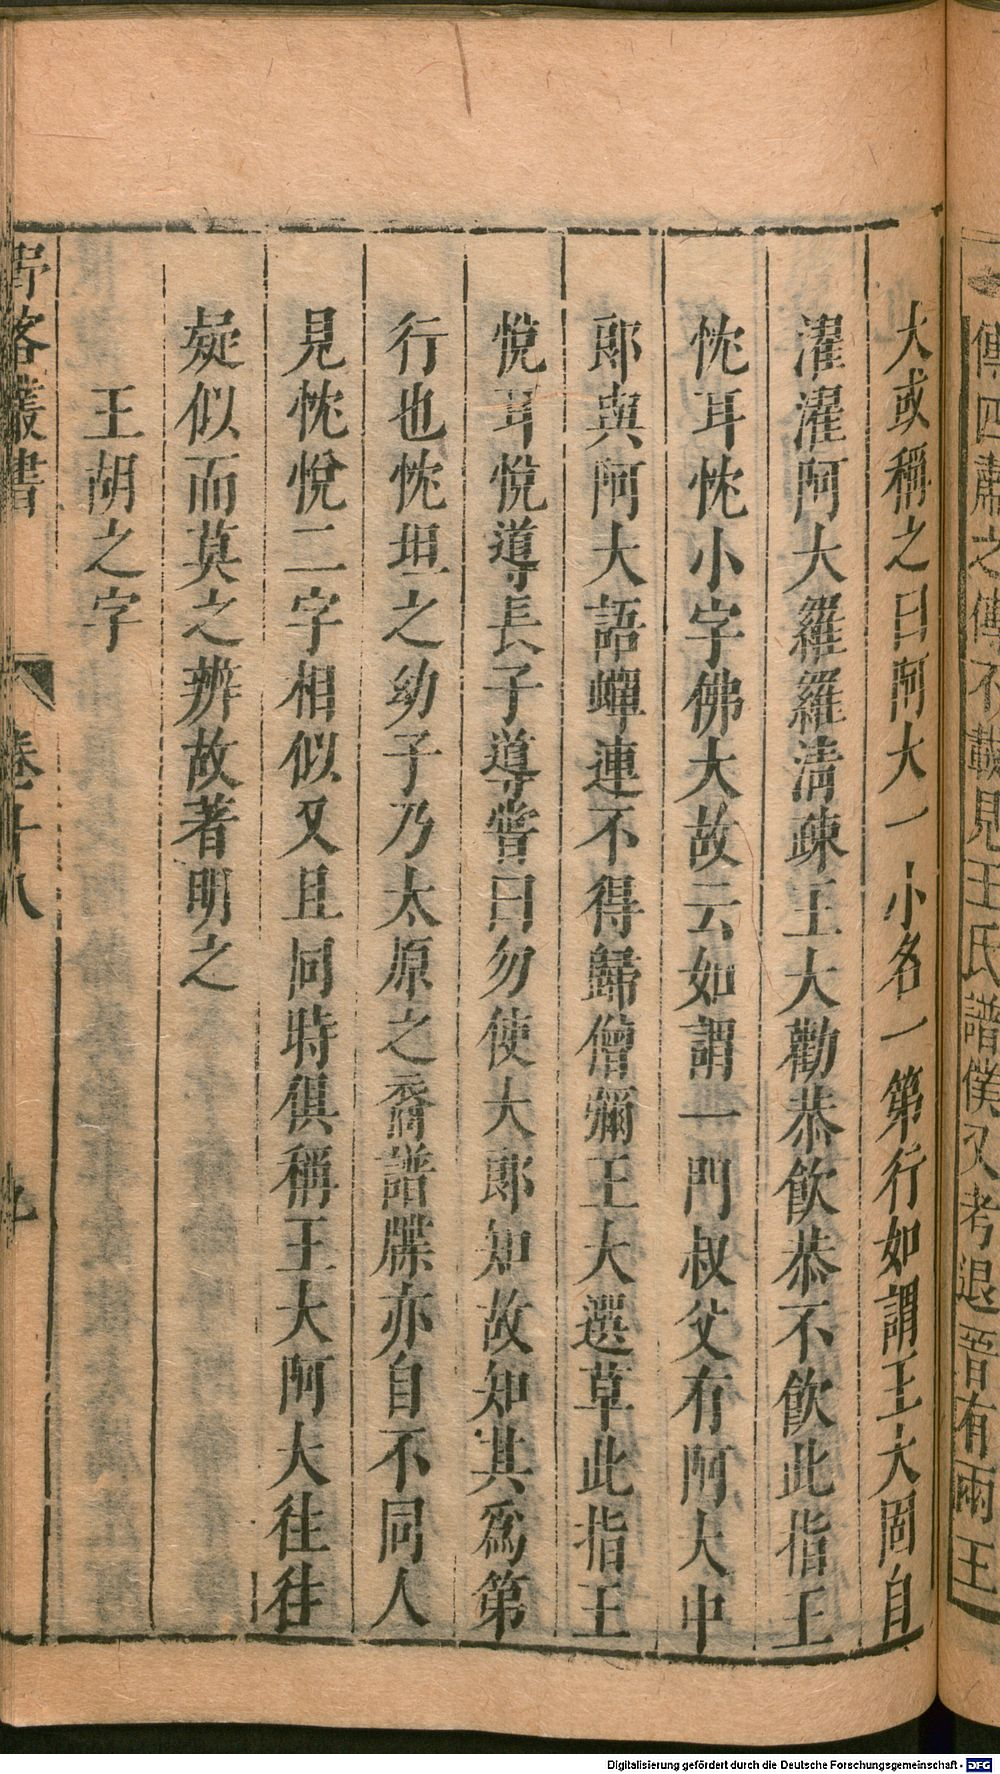 傳四肅之傳不載見王氏譜僕又考退晉有兩王
大或稱之曰阿大一小名一第行如謂王大固自
濯濯阿大羅羅清疎王大勸恭飲恭不飲此指王
忱耳忱小字佛大故云如謂一門叔父有阿大中
郎與阿大語蟬連不得歸僧彌王大選草此指王
悅耳悅導長子導嘗曰勿使大郎知故知其爲第
行也忱坦之幼子乃太原之裔譜牒亦自不同人
見忱悅二字相似又且同時俱稱王大阿大往往
疑似而莫之辨故著明之
王胡之字
野客叢書 卷十八 九
Digitalisierung gefördert durch die Deutsche Forschungsgemeinschaft - DFG